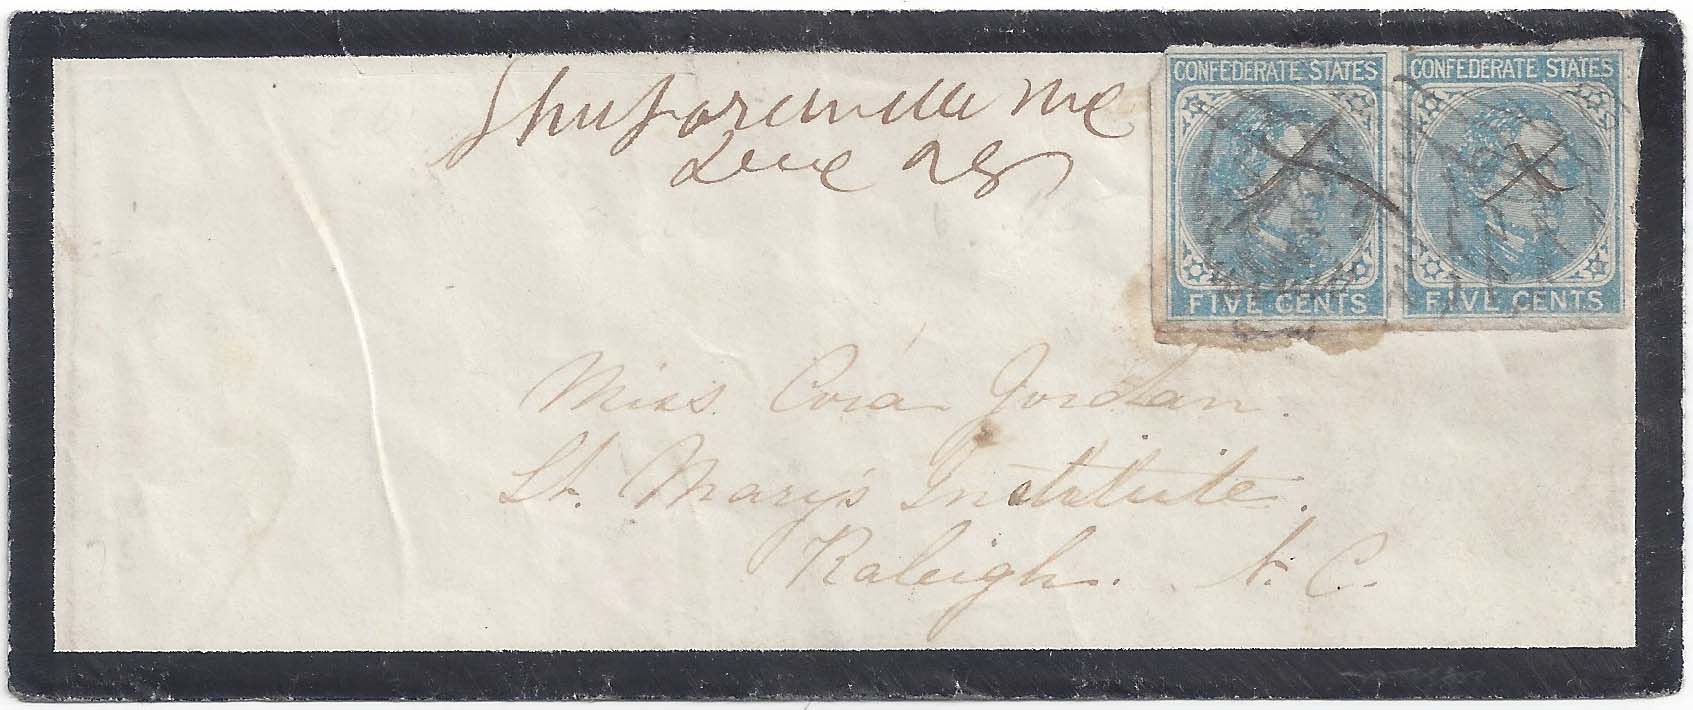 Shufordville NC
28
CONFEDERATE STATES CONFEDERATE STATES
FIVE CENTS FIVE CENTS
Miss Cora Jordan.
St. Mary's Institute.
Raleigh. N. C.